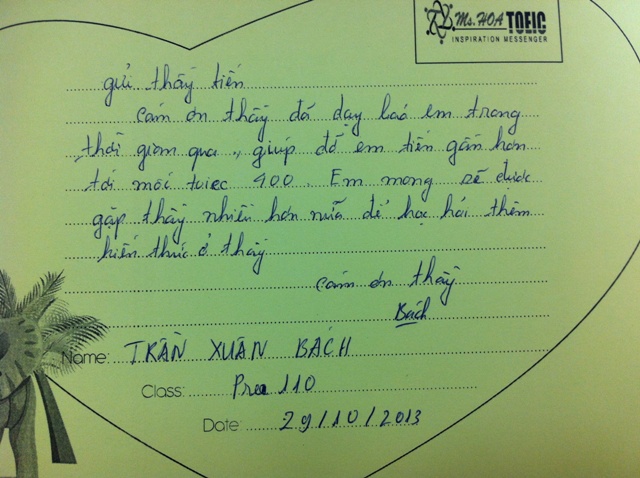 Ms. HOA TOEIC
INSPIRATION MESSENGER
gửi thầy tiến
cám ơn thầy đã dạy bảo em trong
thời giam qua, giúp đỡ em tiến gần hơn
tới mốc toiec 400. Em mong sẽ được
gặp thầy nhiều hơn nữa để học hỏi thêm
kiến thức ở thầy
cám ơn thầy
Bách
Name: TRẦN XUÂN BÁCH
Class: Pre 110
Date: 29/10/2013